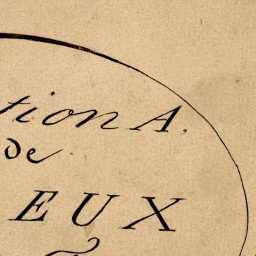 tion A.
de
EUX